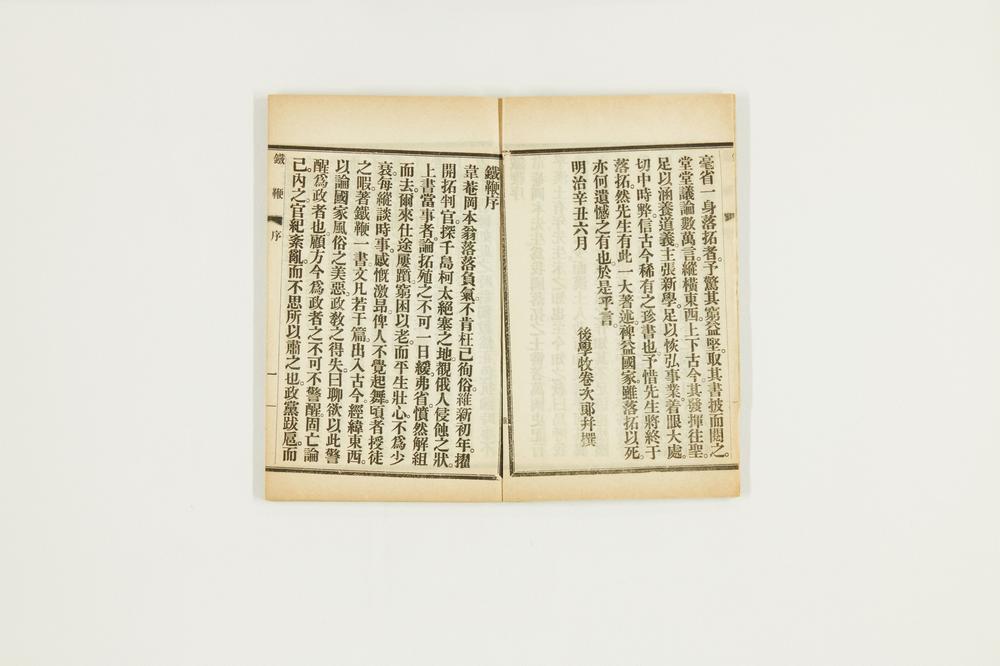 毫省一身落拓者。予驚其窮益堅。取其書披而閱之。
堂堂議論數萬言。縱橫東西。上下古今。其發揮往聖。
足以涵養道義。主張新學。足以恢弘事業。着眼大處。
切中時弊。信古今稀有之珍書也。予惜先生將終于
落拓。然先生有此一大著述。裨益國家。雖落拓以死。
亦何遺憾之有也。於是乎言。
明治辛丑六月
後學牧卷次郎幷撰
鐵鞭序
韋菴岡本翁落落負氣。不肯枉己徇俗。維新初年。擢
開拓判官。探千島柯太絕塞之地。覩俄人侵蝕之狀。
上書當事者。論拓殖之不可一日緩。弗省。憤然解組
而去。爾來仕途屢躓。窮困以老。而平生壯心。不爲少
衰。每縱談時事。感慨激昂。俾人不覺起舞。頃者授徒
之暇。著鐵鞭一書。文凡若干篇。出入古今。經緯東西。
以論國家風俗之美惡。政敎之得失。曰聊欲以此警
醒爲政者也。顧方今爲政者之不可不警醒。固亡論
己。內之官紀紊亂。而不思所以肅之也。政黨跋扈。而
鐵鞭 序
一